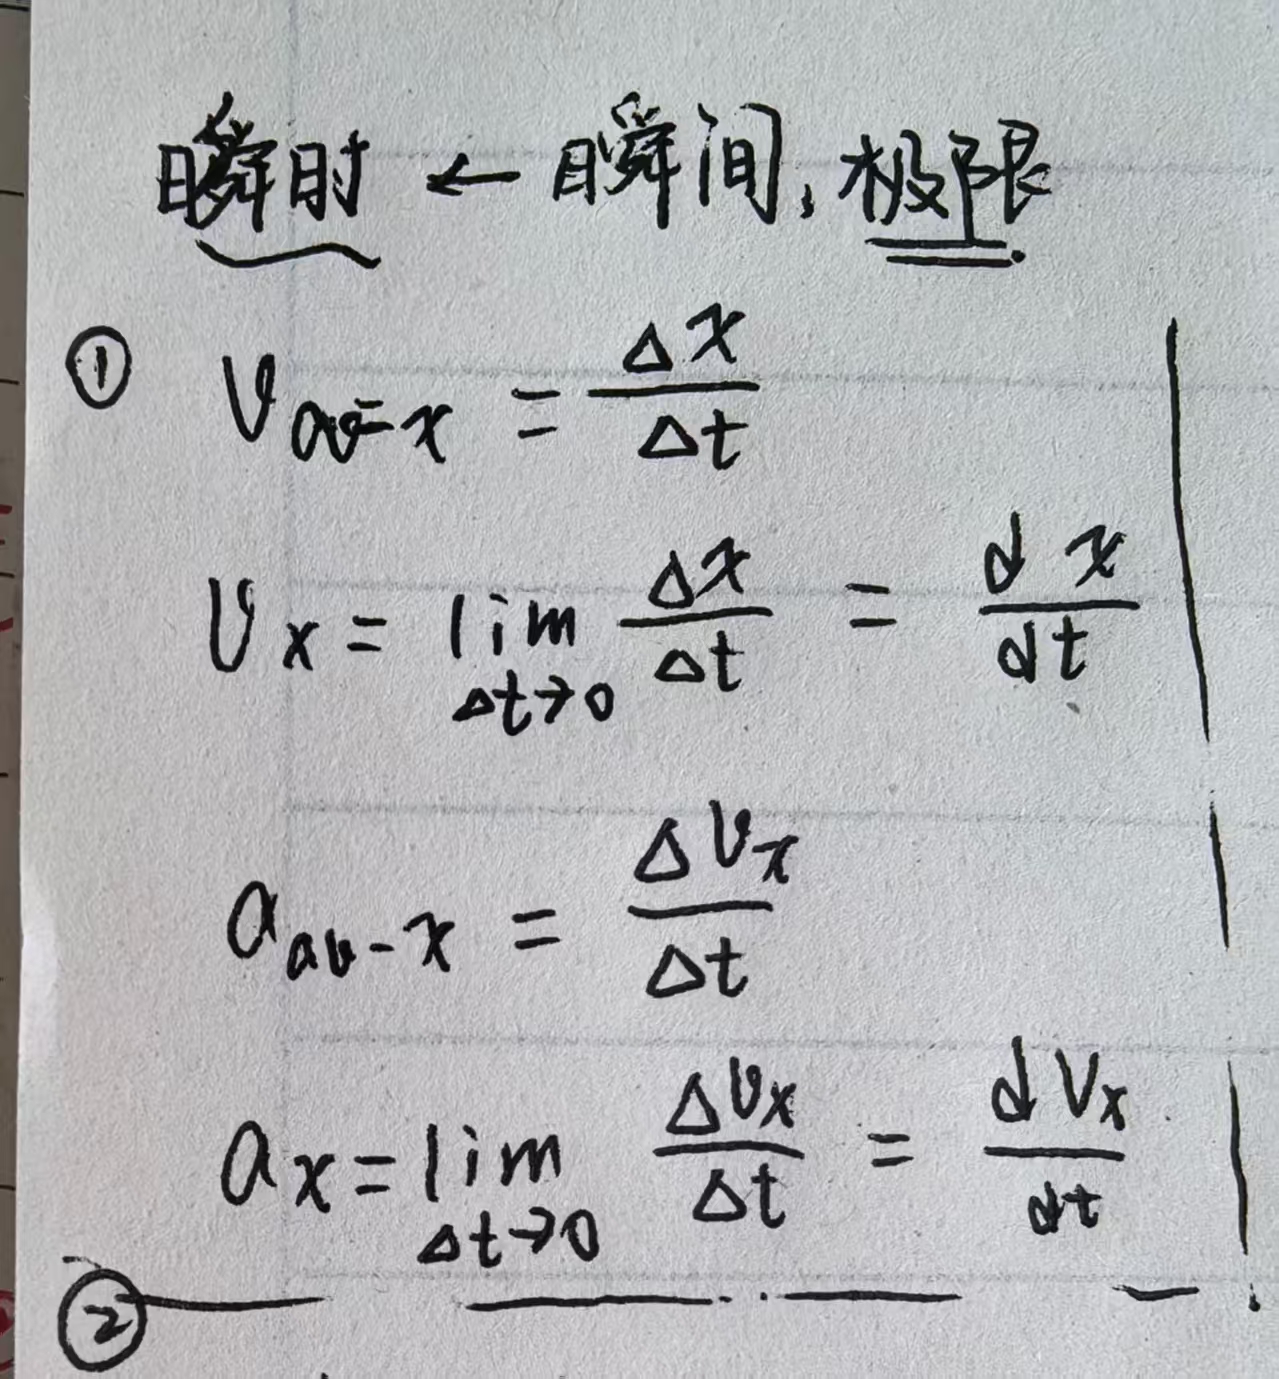 瞬时 ← 瞬间, 极限
① v_{av-x} = Δx/Δt
v_x = lim_{Δt→0} Δx/Δt = dx/dt
a_{av-x} = Δv_x/Δt
a_x = lim_{Δt→0} Δv_x/Δt = dv_x/dt
②